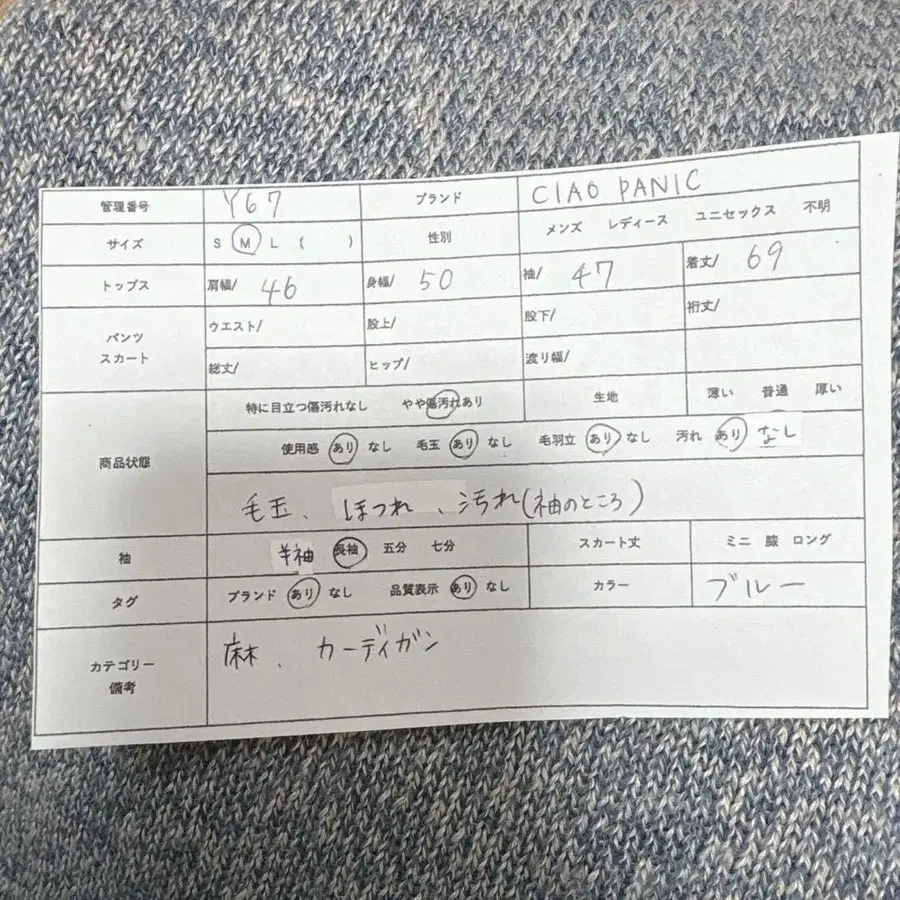 管理番号 Y67 ブランド CIAO PANIC
サイズ S M L ( ) 性別 メンズ レディース ユニセックス 不明
トップス 肩幅/ 46 身幅/ 50 袖/ 47 着丈/ 69
パンツ スカート ウエスト/ 股上/ 股下/ 裄丈/
総丈/ ヒップ/ 渡り幅/
商品状態 特に目立つ傷汚れなし やや傷汚れあり 生地 薄い 普通 厚い
使用感 あり なし 毛玉 あり なし 毛羽立 あり なし 汚れ あり なし
毛玉、ほつれ、汚れ(袖のところ)
袖 半袖 長袖 五分 七分 スカート丈 ミニ 膝 ロング
タグ ブランド あり なし 品質表示 あり なし カラー ブルー
カテゴリー 備考 麻、カーディガン